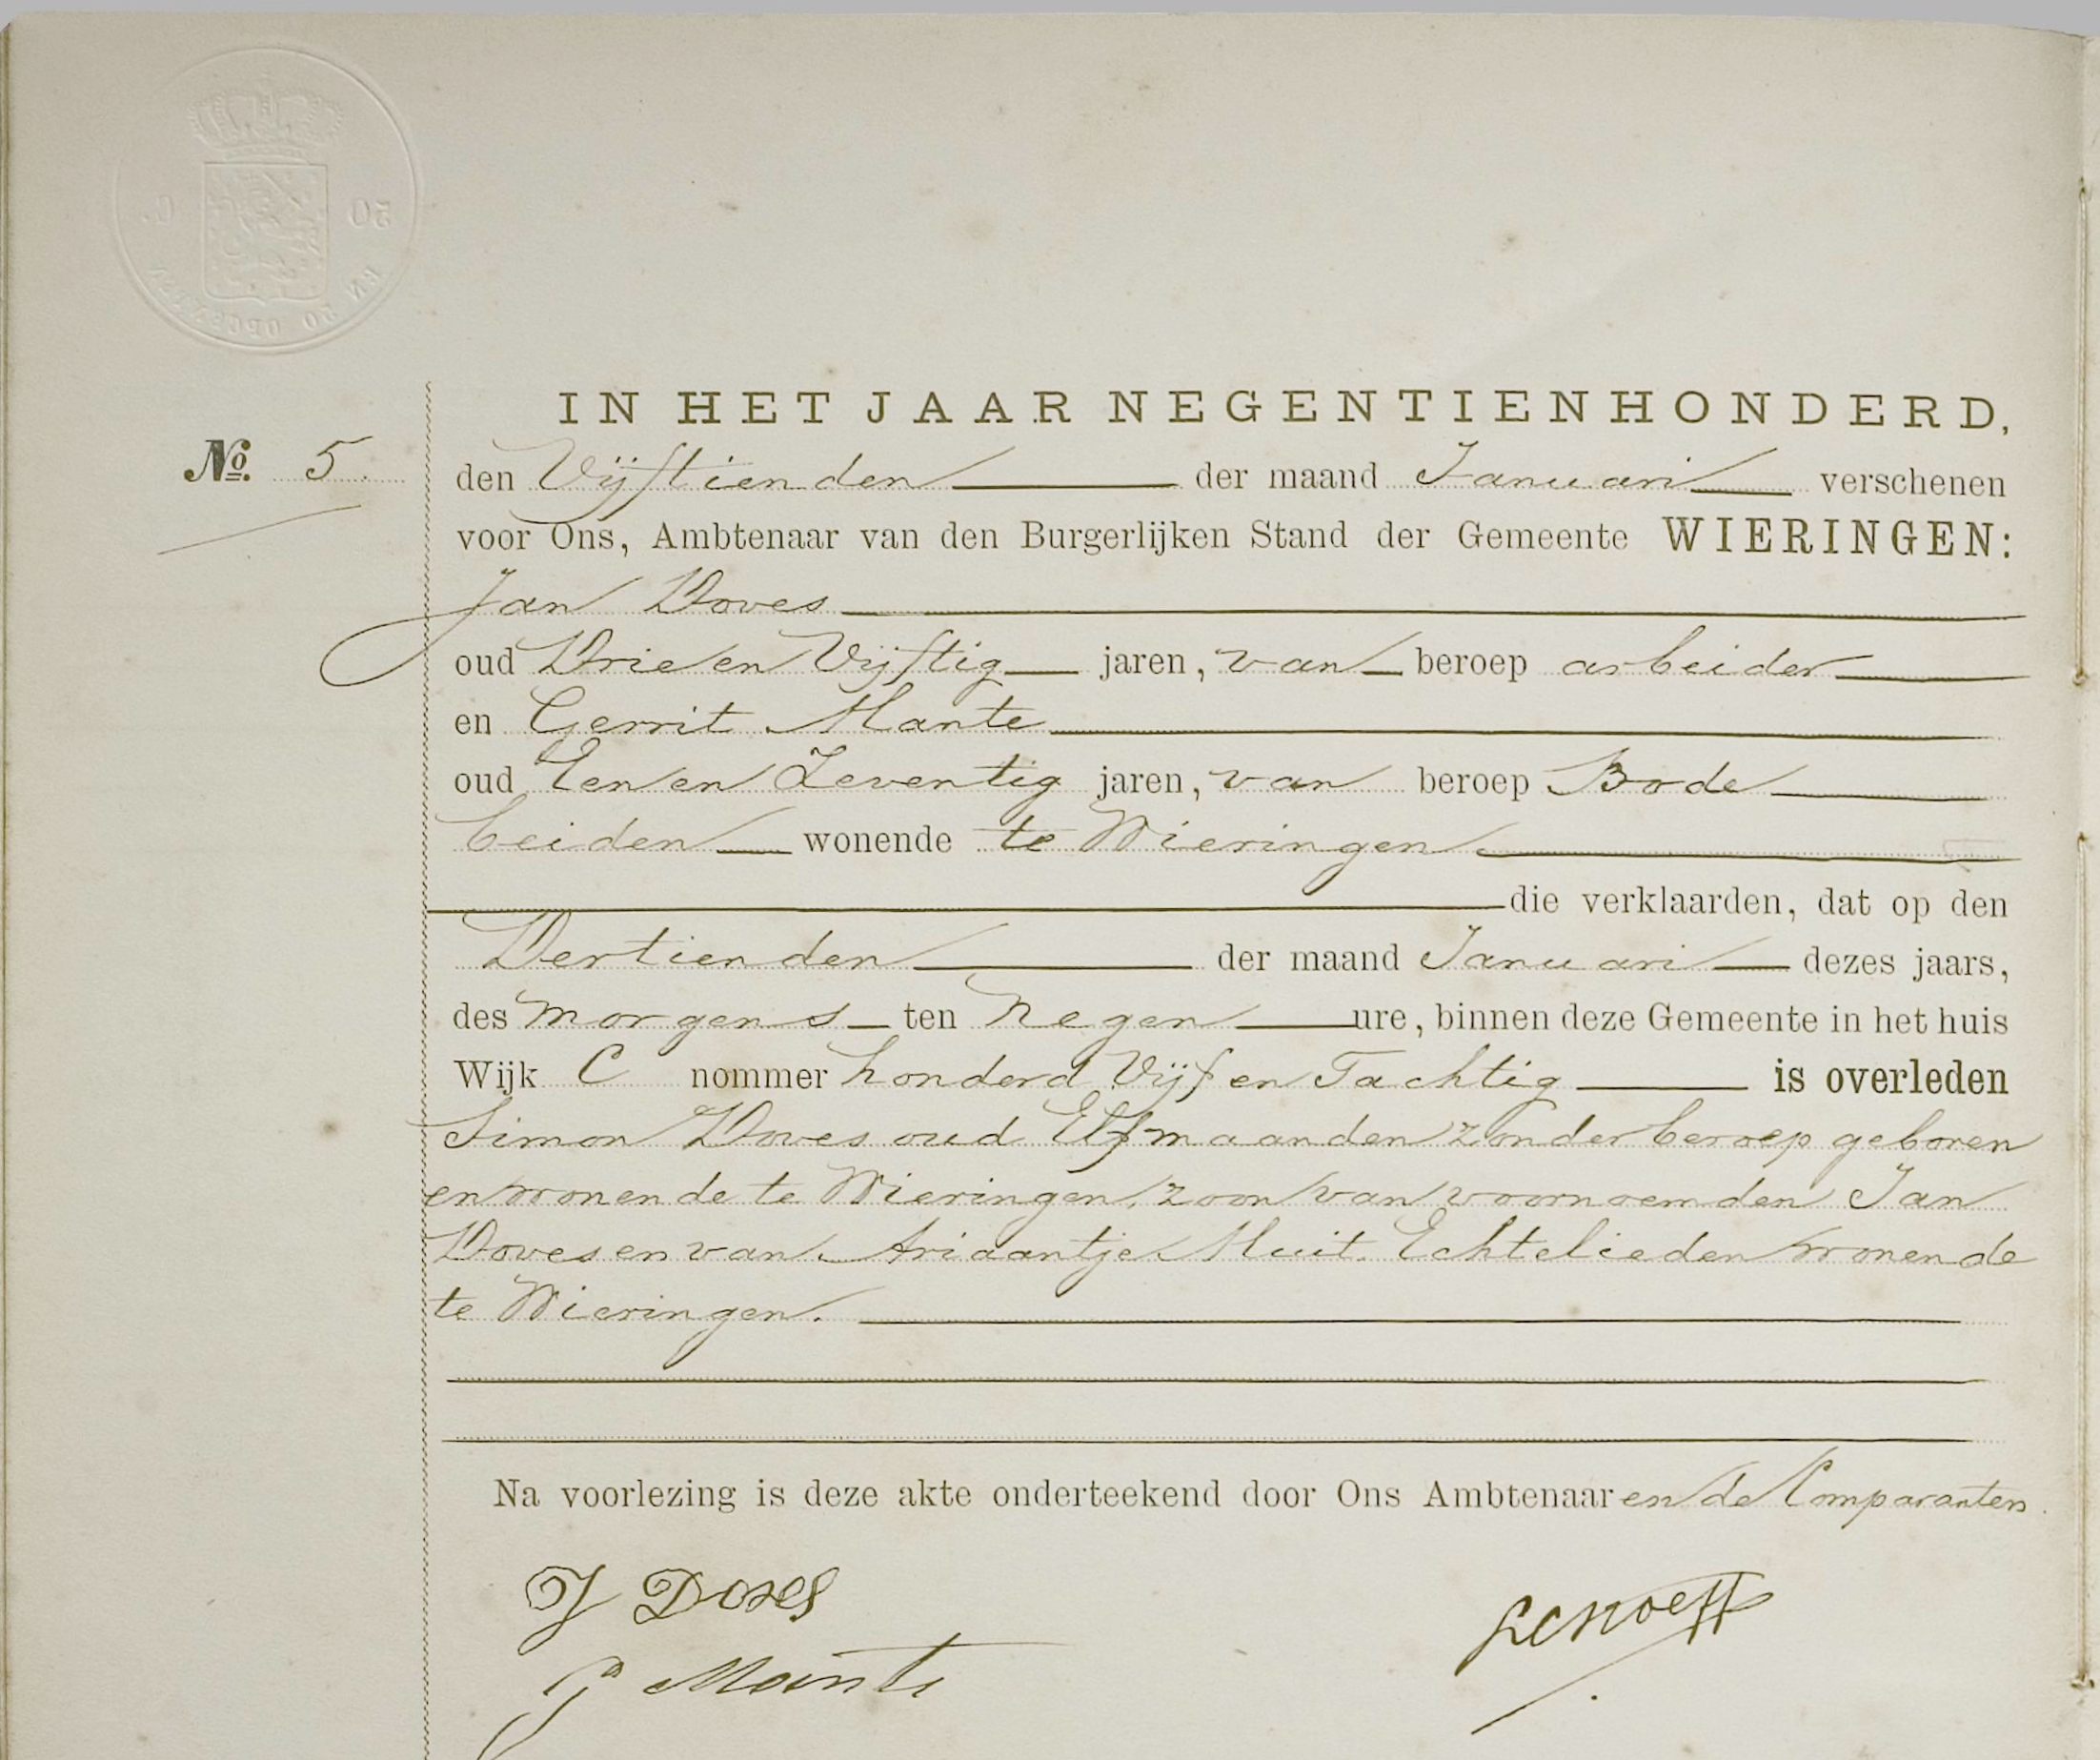 IN HET JAAR NEGENTIENHONDERD,
No. 5.
den Vijftienden der maand Januari verschenen
voor Ons, Ambtenaar van den Burgerlijken Stand der Gemeente WIERINGEN:
Jan Doves
oud Drie en Vijftig jaren, van beroep arbeider
en Gerrit Mante
oud Een en Zeventig jaren, van beroep Bode
beiden wonende te Wieringen
die verklaarden, dat op den
Dertienden der maand Januari dezes jaars,
des morgens ten Negen ure, binnen deze Gemeente in het huis
Wijk C nommer honderd Vijf en Tachtig is overleden
Simon Doves oud Elf maanden zonder beroep geboren
en wonende te Wieringen, zoon van voornoemden Jan
Doves en van Ariaantje Muit Echtelieden wonende
te Wieringen.
Na voorlezing is deze akte onderteekend door Ons Ambtenaar en de Comparanten.
J Doves
G Mante